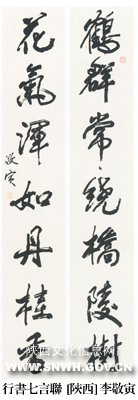 鶴群常繞橋陵樹
花氣渾如丹桂
敬寅
陕西文化信息网
WWW.SNWH.GOV.CN
行書七言聯 [陝西] 李敬寅